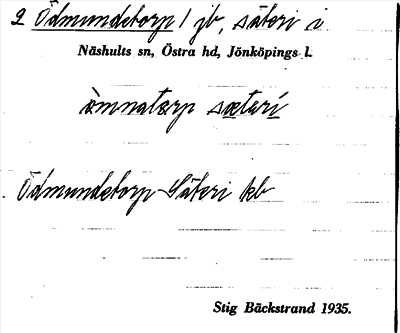 2 Ödmundetorp 1 jb, säteri i
Näshults sn, Östra hd, Jönköpings l.
ömnatorp sæteri
Ödmundetorp Säteri kb
Stig Bäckstrand 1935.